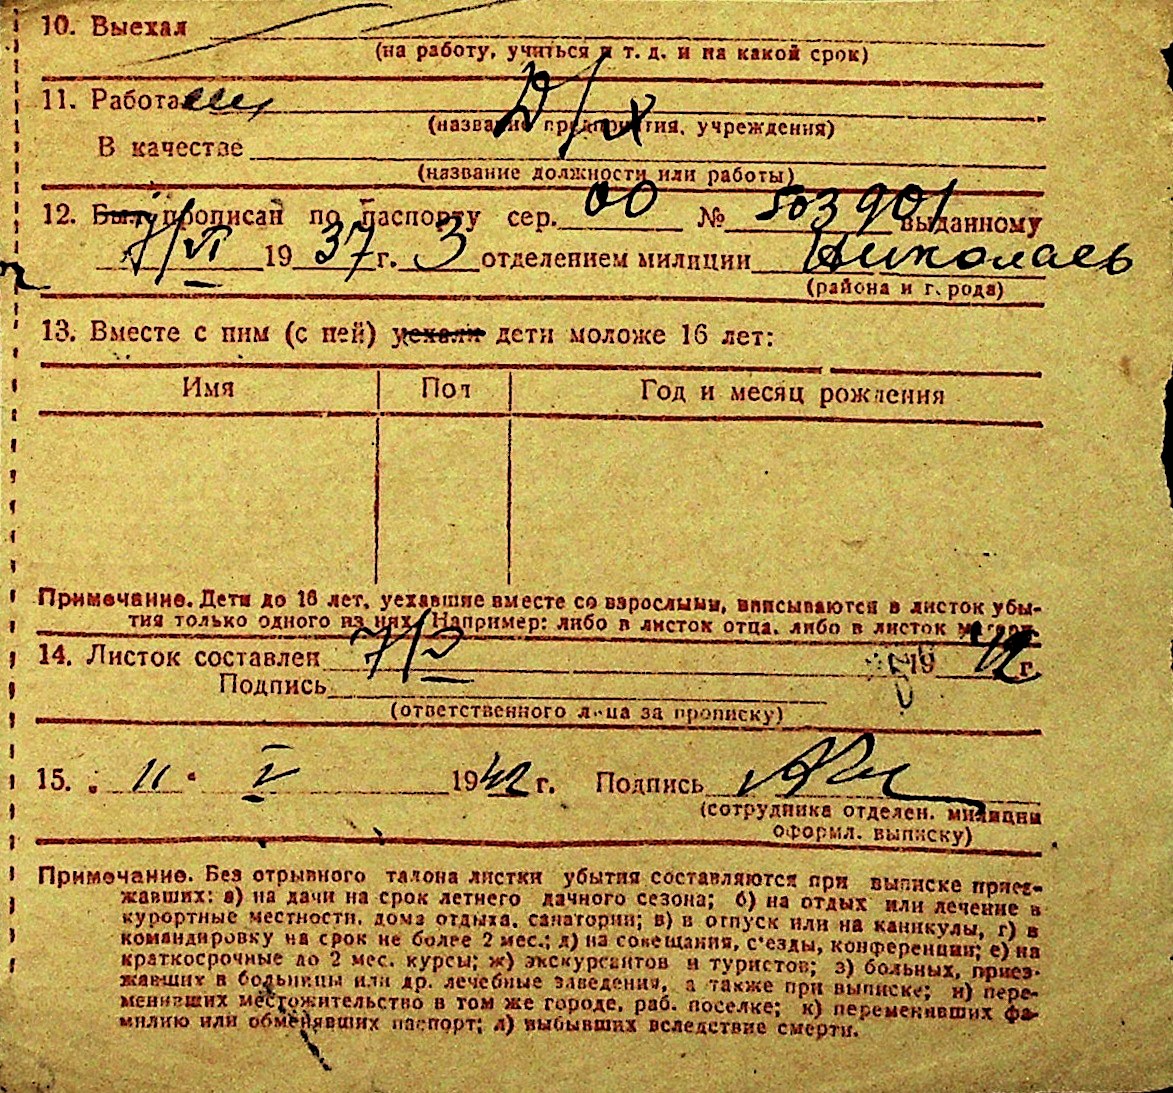 10. Выехал
(на работу, учиться и т. д. и на какой срок)
11. Работа Д/х
(название предприятия, учреждения)
В качестве
(название должности или работы)
12. Был прописан по паспорту сер. 00 № 503901 выданному
7/VI 1937 г. 3 отделением милиции Николаев
(района и города)
13. Вместе с ним (с ней) уехали дети моложе 16 лет:
Имя Пол Год и месяц рождения
Примечание. Дети до 16 лет, уехавшие вместе со взрослыми, вписываются в листок убы-
тия только одного из них. Например: либо в листок отца, либо в листок матери.
14. Листок составлен 7/5 1942 г.
Подпись
(ответственного лица за прописку)
15. „ 11 “ V 1942 г. Подпись
(сотрудника отделен. милиции
оформл. выписку)
Примечание. Без отрывного талона листки убытия составляются при выписке приез-
жавших: а) на дачи на срок летнего дачного сезона; б) на отдых или лечение в
курортные местности, дома отдыха, санатории; в) в отпуск или на каникулы, г) в
командировку на срок не более 2 мес.; д) на совещания, с'езды, конференции; е) на
краткосрочные до 2 мес. курсы; ж) экскурсантов и туристов; з) больных, приез-
жавших в больницы или др. лечебные заведения, а также при выписке; и) пере-
менивших местожительство в том же городе, раб. поселке; к) переменивших фа-
милию или обменявших паспорт; л) выбывших вследствие смерти.